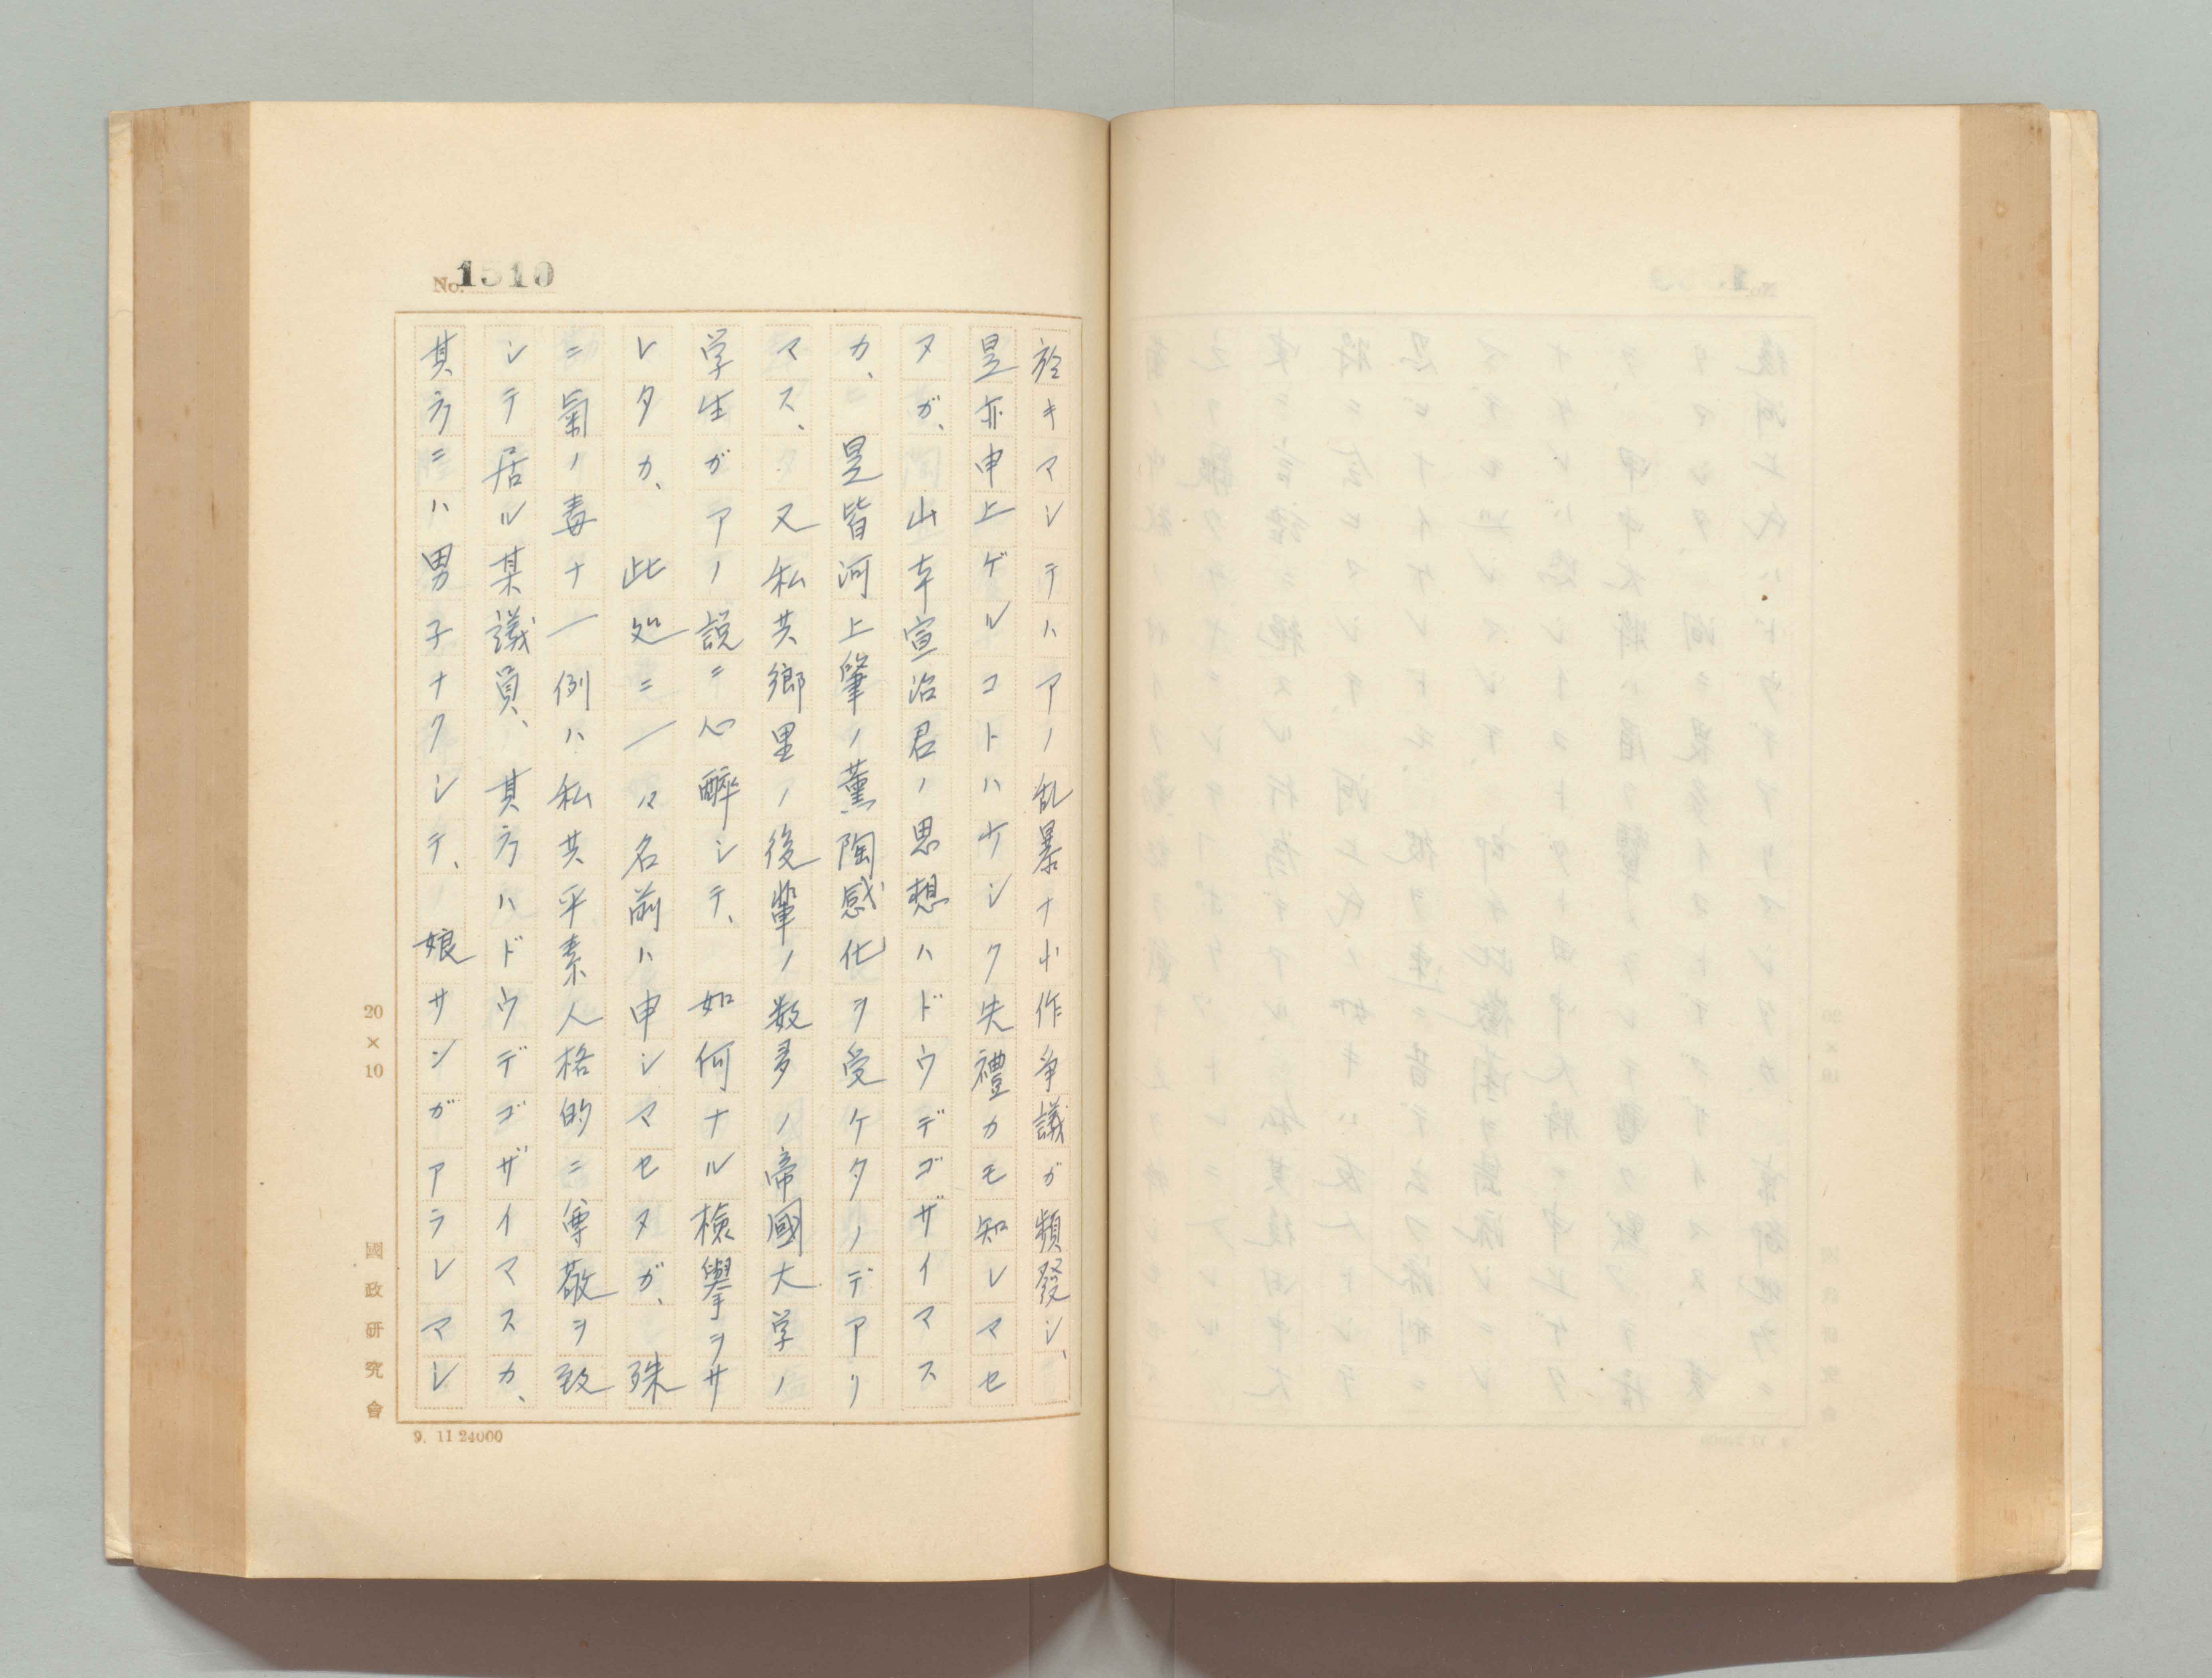 No. 1510
於キマシテハアノ乱暴ナ小作争議ガ頻發シ、
是亦申上ゲルコトハ少シク失禮カモ知レマセ
ヌガ、山本宣治君ノ思想ハドウデゴザイマス
カ、是皆河上肇ノ薫陶感化ヲ受ケタノデアリ
マス、又私共郷里ノ後輩ノ数多ノ帝國大学ノ
学生ガアノ説ニ心醉シテ、如何ナル檢擧ヲサ
レタカ、此処ニ一々名前ハ申シマセヌガ、殊
ニ氣ノ毒ナ一例ハ私共平素人格的ニ尊敬ヲ致
シテ居ル某議員、其方ハドウデゴザイマスカ、
其方ニハ男子ナクシテ、娘サンガアラレマシ
20×10
國政研究會
9. 11 24000